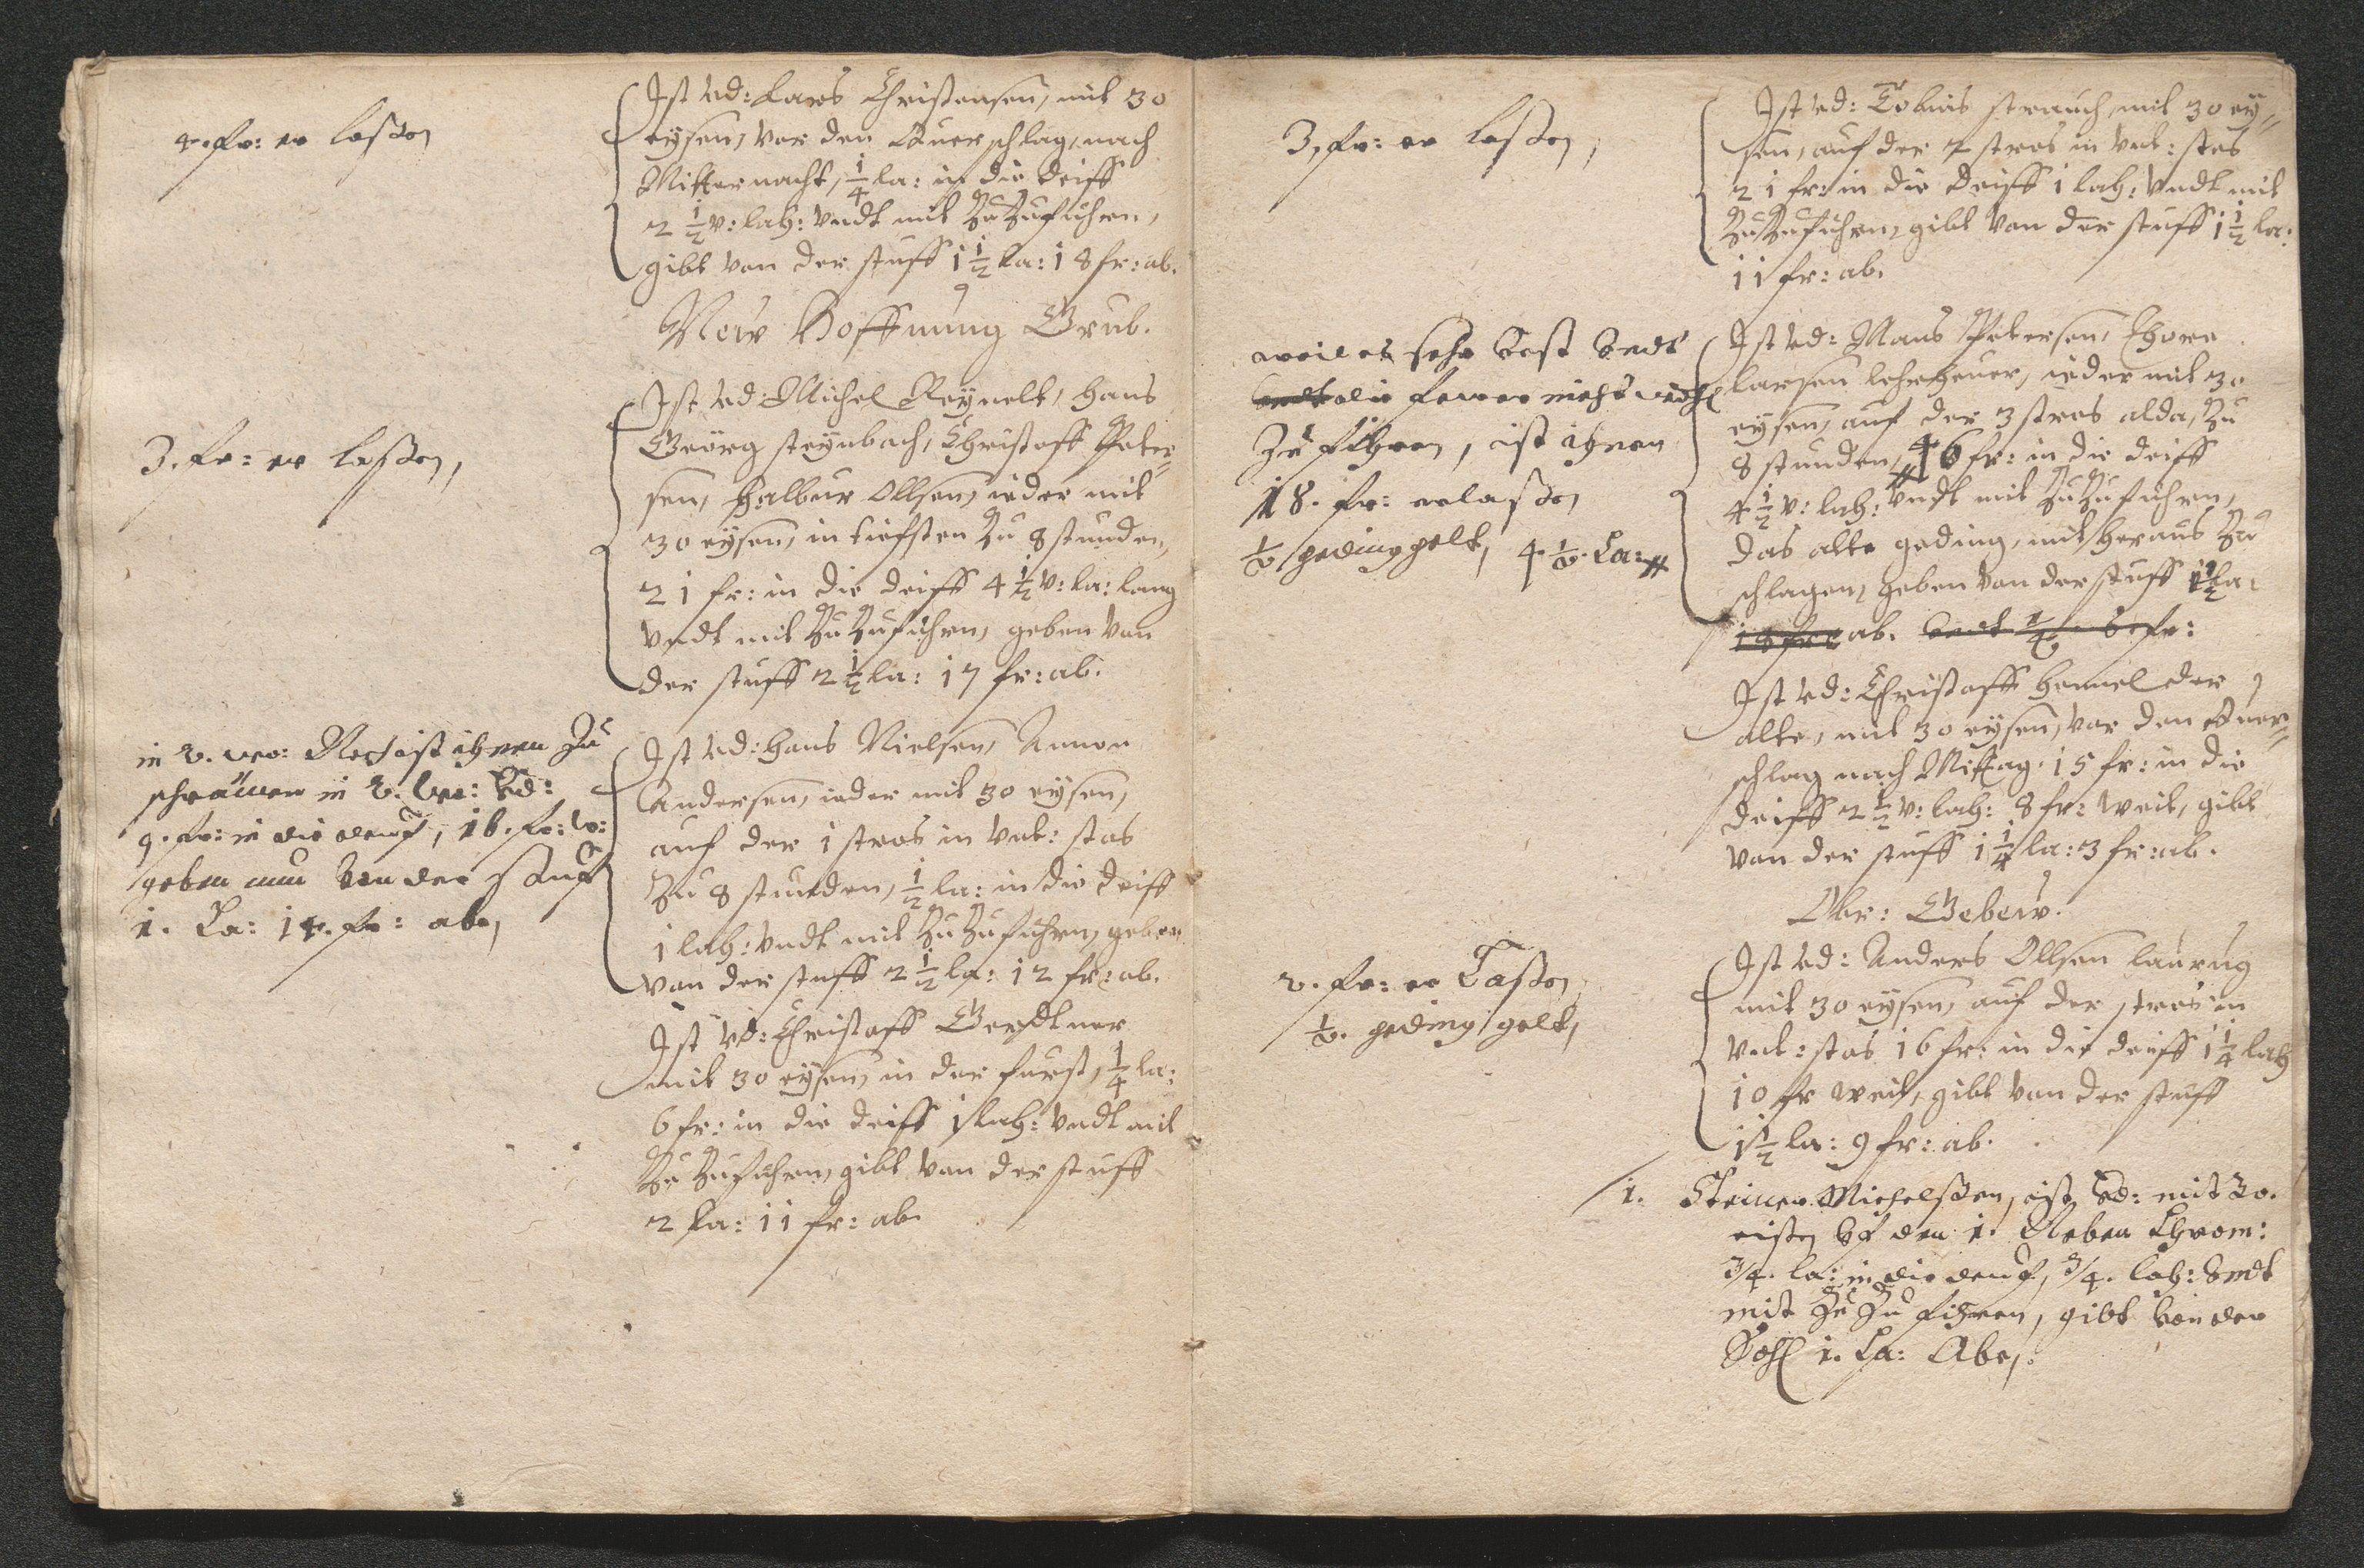 4. fr: er laßen
Ist vd: Lars Christensen, mit 30
eysen, vor den Querschlag, nach
Mitternacht, 1/4 la: in die deiff
2 1/2 v: lah: vndt mit Zu Zuführen,
gibt von der stuff 1 1/2 La: 18 fr: ab.
New Hoffnung Grub.
3. fr: er laßen,
Ist vd: Michel Reynelt, Hans
Georg steynbach, Christoff Peter=
sen, Halbur Ollsen, ieder mit
30 eysen, in tiefsten Zu 8 stunden,
21 fr: in die deiff 4 1/2 v: la: lang
vndt mit Zu Zuführen, geben von
der stuff 2 1/2 la: 17 fr: ab.
in 2. wo: Noch ist ihnen Zu
schrämen in 2. wo: vd:
9. fr: in die deuf, 16. fr: w:
geben nun von der Stuf
1. La: 14. fr: abe,
Ist vd: Hans Nielsen, Amon
Andersen, ieder mit 30 eysen,
auf der 1 stros in vnt: stos
Zu 8 stunden, 1/2 la: in die deiff
1 lah: vndt mit Zu Zuführen, geben
von der stuff 2 1/2 la: 12 fr: ab.
Ist vd: Christoff Gerdtner
mit 30 eysen, in der furst, 1/4 la:
6 fr: in die deiff 1 lah: vndt mit
Zu Zuführen, gibt von der stuff
2 La: 11 fr: ab.
3. fr: er laßen,
Ist vd: Tobias strauch, mit 30 ey=
sen, auf der 2 stros in vnt: stos
21 fr: in die deiff 1 lah: vndt mit
Zu Zuführen, gibt von der stuff 1 1/2 la:
11 fr: ab.
weil es sehr vest vndt
vndt die ferner nicht
Zu führen, ist ihnen
18. fr: erlaßen
1/2 geding gelt, 4 1/2 La:
Ist vd: Mans Petersen, Thore
Larsen lehrheuer, ieder mit 30
eysen, auf der 3 stros alda, Zu
8 stunden, 16 fr: in die deiff
4 1/2 v: lah: vndt mit Zu Zuführen,
das alte geding, mit heraus Zu
schlagen, geben von der stuff 1 1/2 La:
18 fr: ab. vndt 6 fr:
Ist vd: Christoff Hemel der
alte, mit 30 eysen, vor den Quer=
schlag nach Mittag, 15 fr: in die
deiff 2 1/2 v: lah: 8 fr: weit, gibt
von der stuff 1 1/4 la: 3 fr: ab.
Obr: Gebew.
2. fr: er Laßen,
1/2. geding gelt,
Ist vd: Anders Ollsen laurug
mit 30 eysen, auf der stros in
vnt: stos 16 fr: in die deiff 1 1/4 lah
10 fr weit, gibt von der stuff
1 1/2 la: 9 fr: ab.
1. Steiner Michelßen, ist vd: mit 30.
eißen vf den 1. Neben
3/4. la: in die deuf, 3/4. lah: vndt
mit Zu Zu führen, gibt von der
Sohl 1. La: Abe,